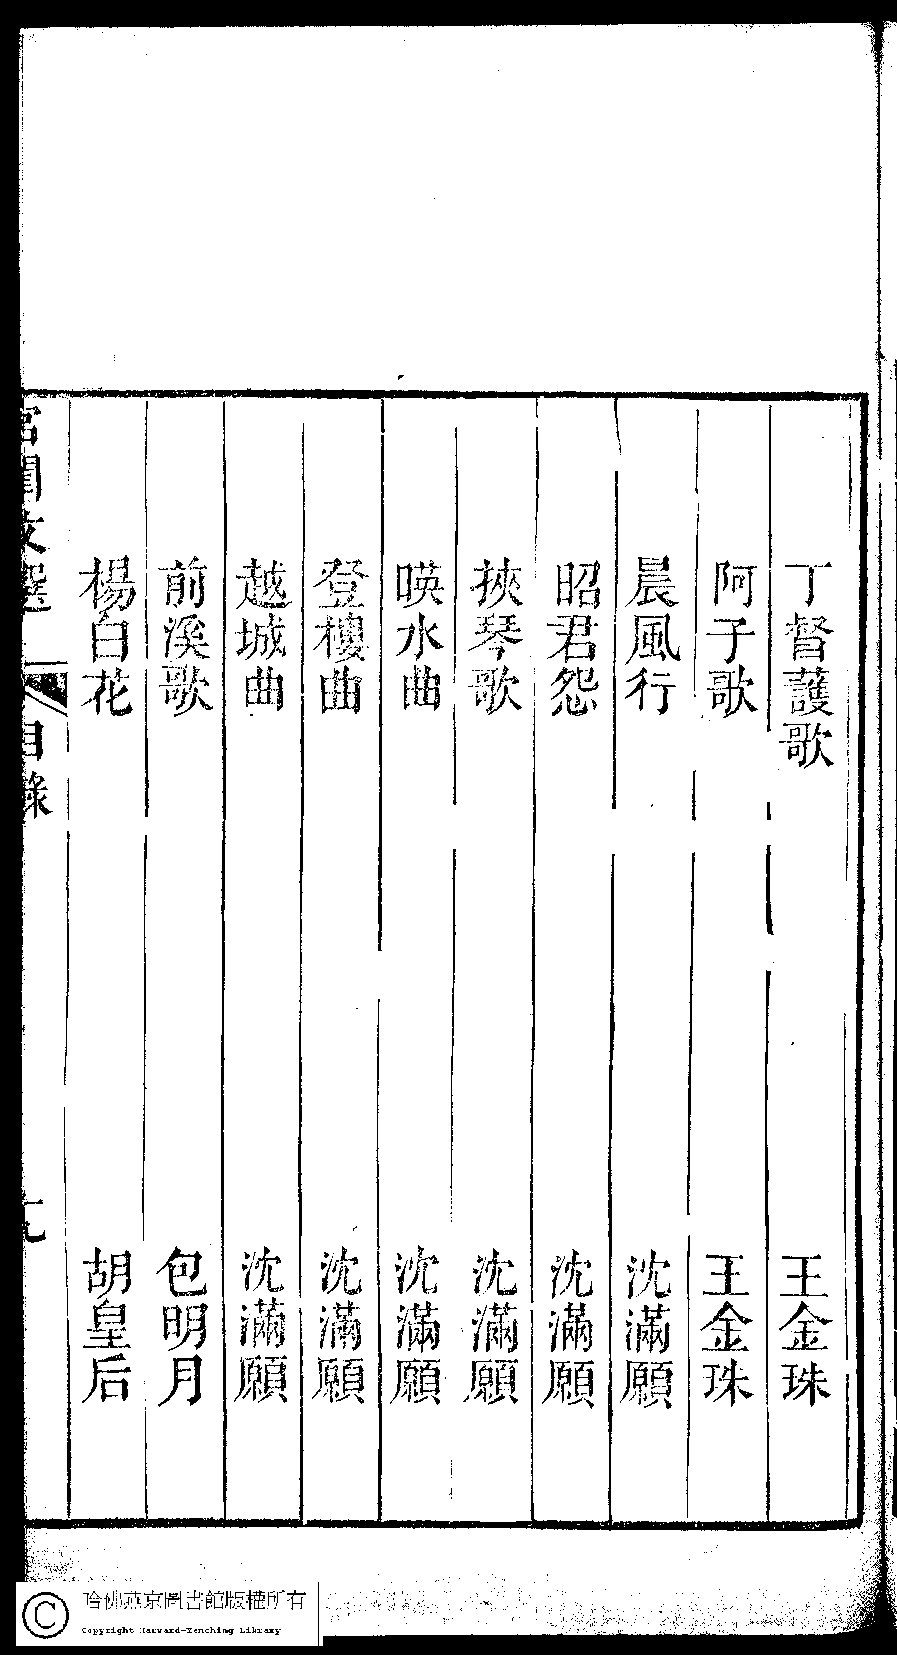 丁督護歌 王金珠
阿子歌 王金珠
晨風行 沈滿願
昭君怨 沈滿願
挾琴歌 沈滿願
暎水曲 沈滿願
登樓曲 沈滿願
越城曲 沈滿願
前溪歌 包明月
楊白花 胡皇后
宮閨文選 目錄
哈佛燕京圖書館版權所有
Copyright Harvard-Yenching Library